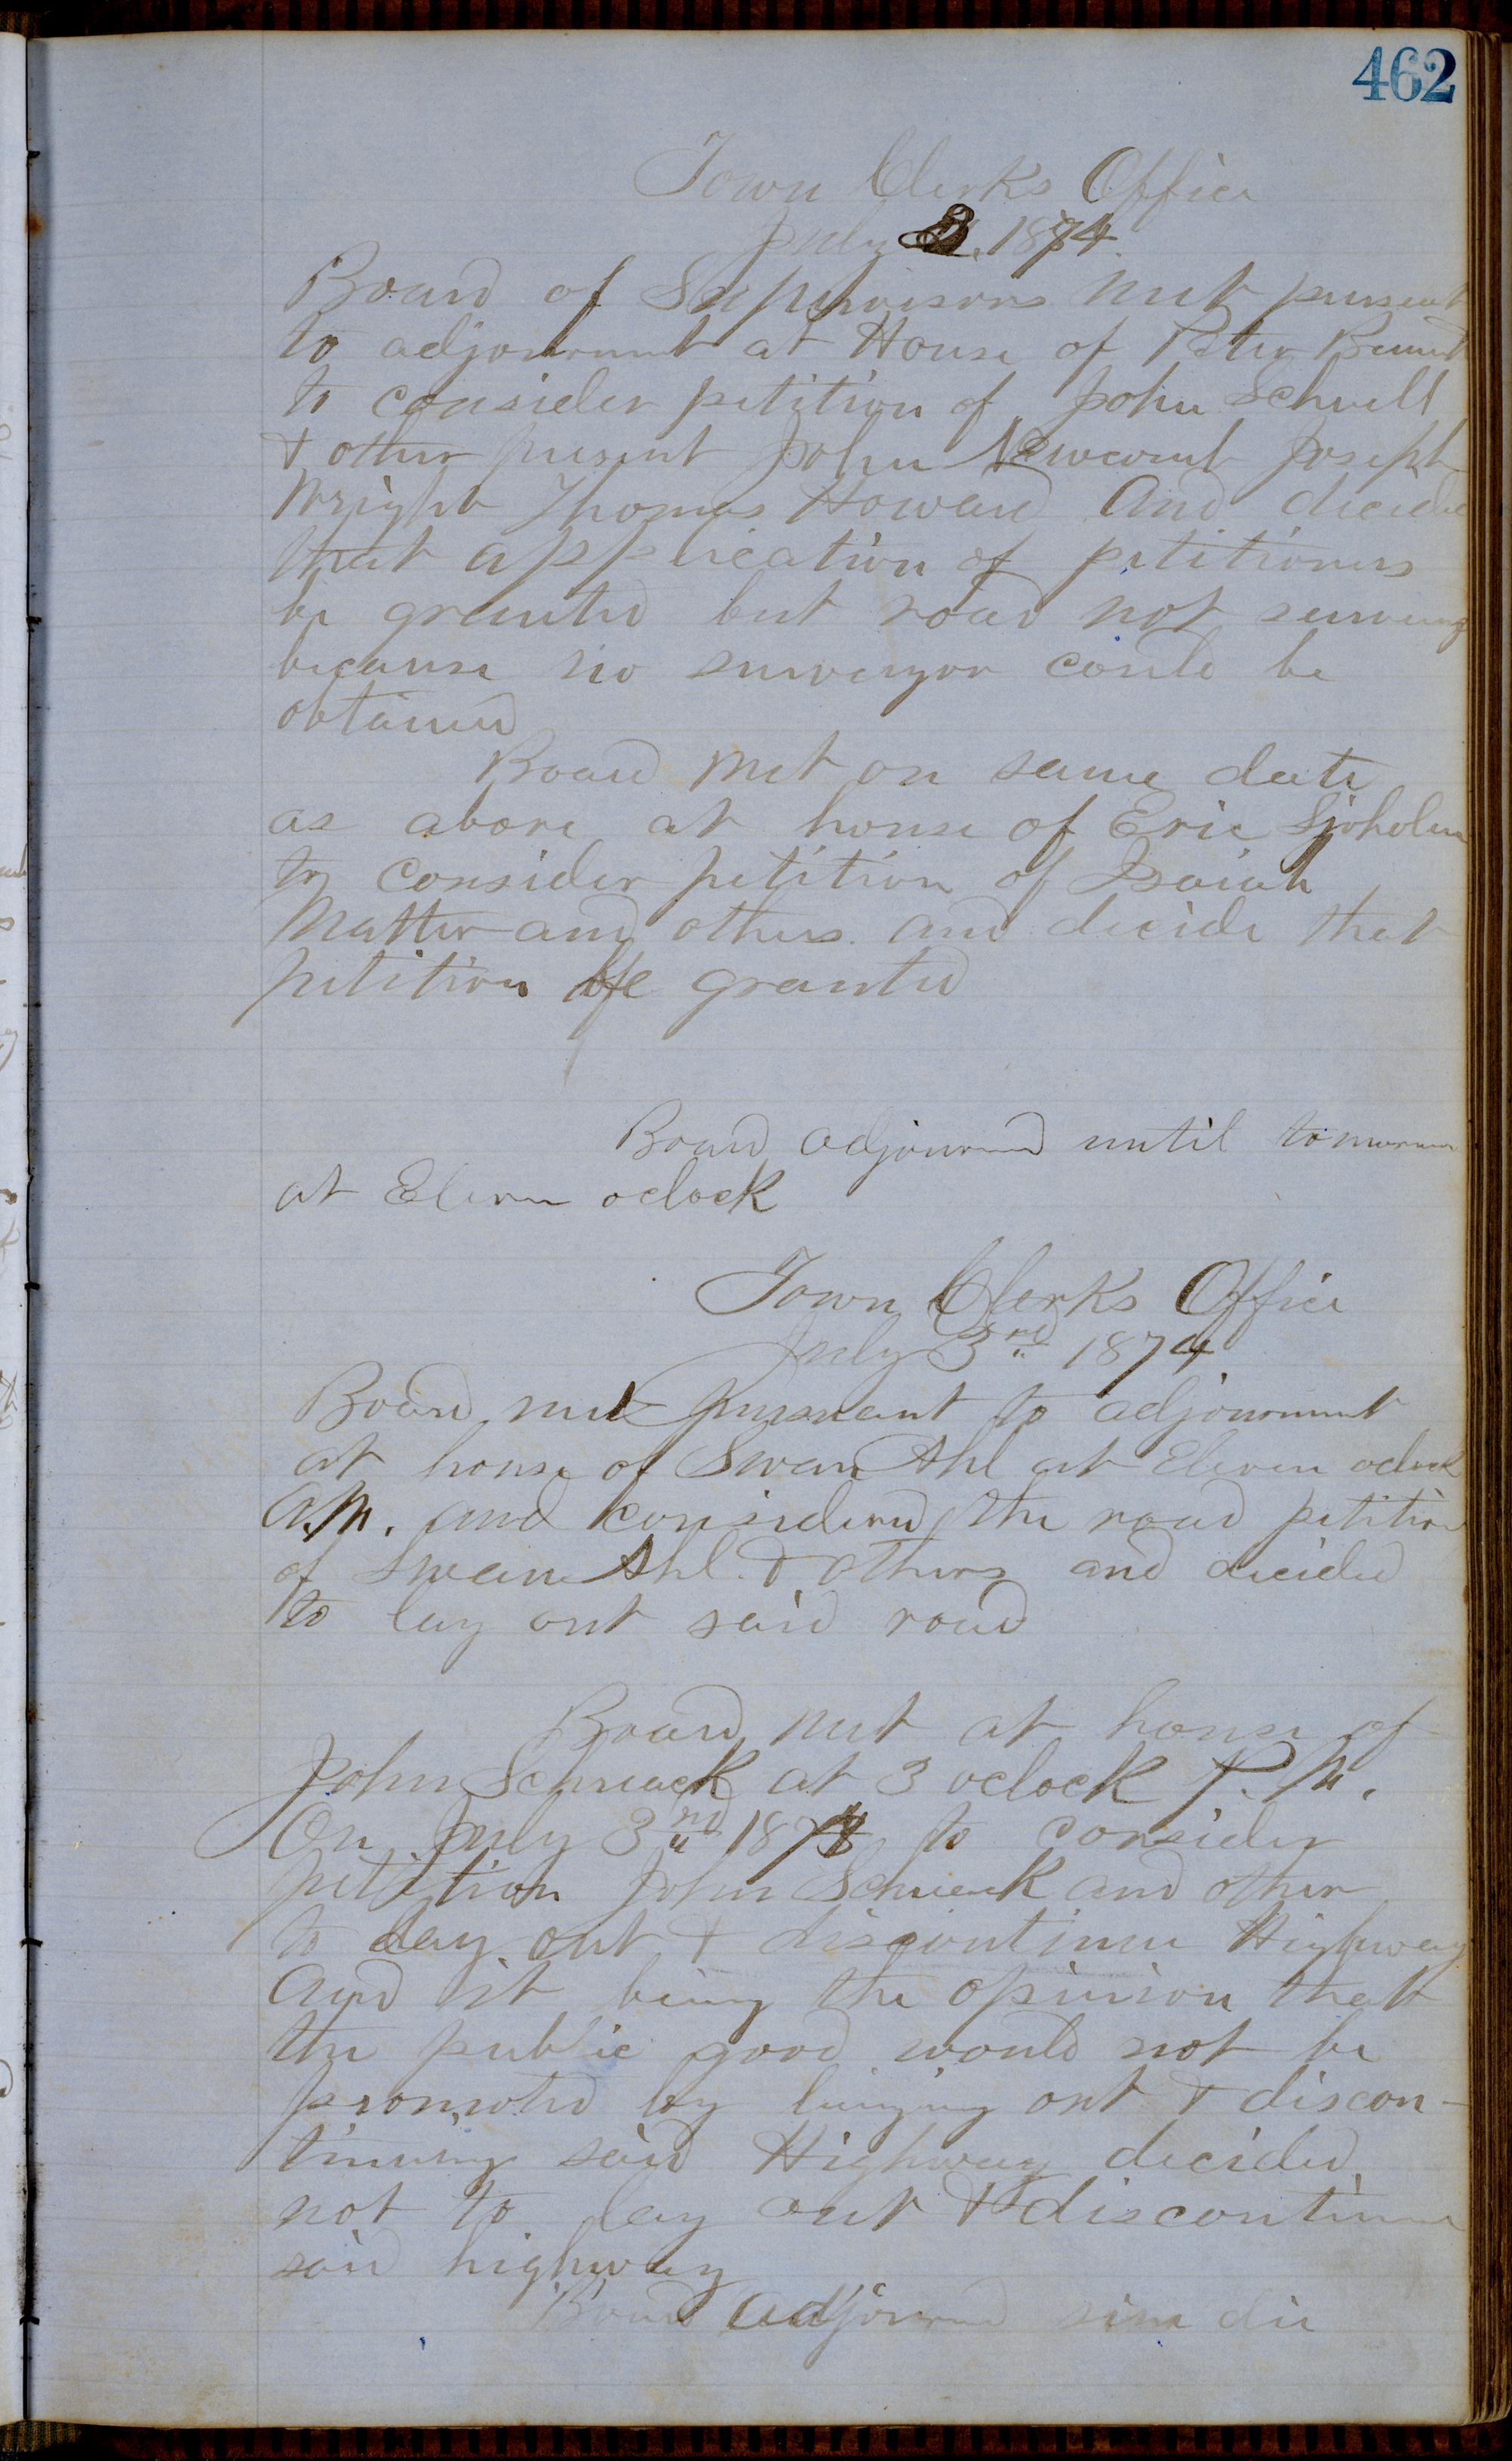 462
Town Clerks Office
July 2. 1874.
Board of Supervisors met pursuant
to adjournment at House of Peter
to consider petition of John Schnell
& other present John Newcomb Joseph
Wright Thomas Howard And decide
that application of petitioners
be granted but road not surveyed
because no surveyor could be
obtained
Board met on same date
as above at house of Eric Sjoholm
to consider petition of Isaiah
Matter and others and decide that
petition be granted
Board adjourned until tomorrow
at Eleven oclock
Town Clerks Office
July 3rd 1874
Board met pursuant to adjournment
at house of Swan Ahl at Eleven oclock
A.M. and considered the road petition
of Swan Ahl & others and decided
to lay out said road
Board met at house of
John at 3 oclock P.M.
On July 3rd 1874 to consider
petition John and other
to lay out & discontinue Highway
And it being the opinion that
the public good would not be
promoted by laying out & discon-
tinuing said Highway decided
not to lay out & discontinue
said highway
Board adjourned sine die